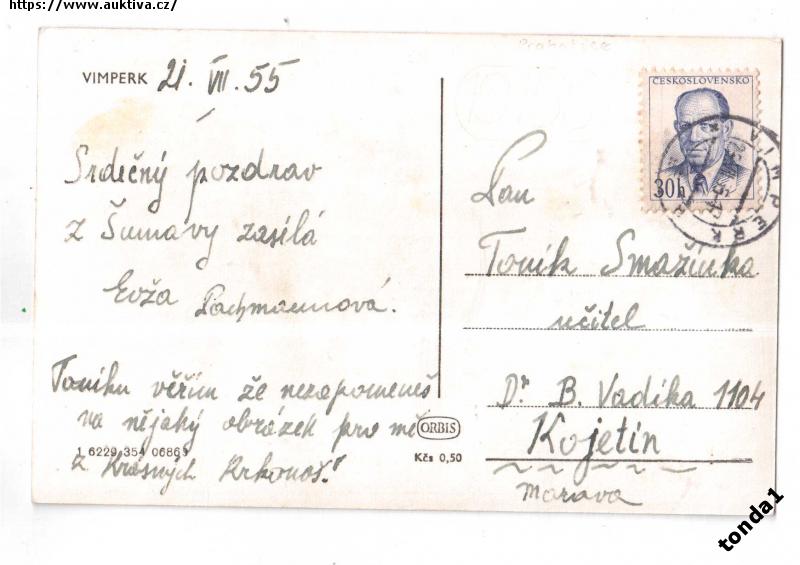 https://www.auktiva.cz/
Prachatice
VIMPERK 21. VII. 55
Srdečný pozdrav
z Šumavy zasílá
Evža Pachmannová.
Toníku věřím že nezapomeneš
na nějaký obrázek pro mě
z krásných Krkonoš!
1 6229 354 06863
ORBIS
Kčs 0,50
ČESKOSLOVENSKO
30h
VIMPERK
Pan
Toník Smažinka
učitel
Dr. B. Vadíka 1104
Kojetín
Morava
tonda1